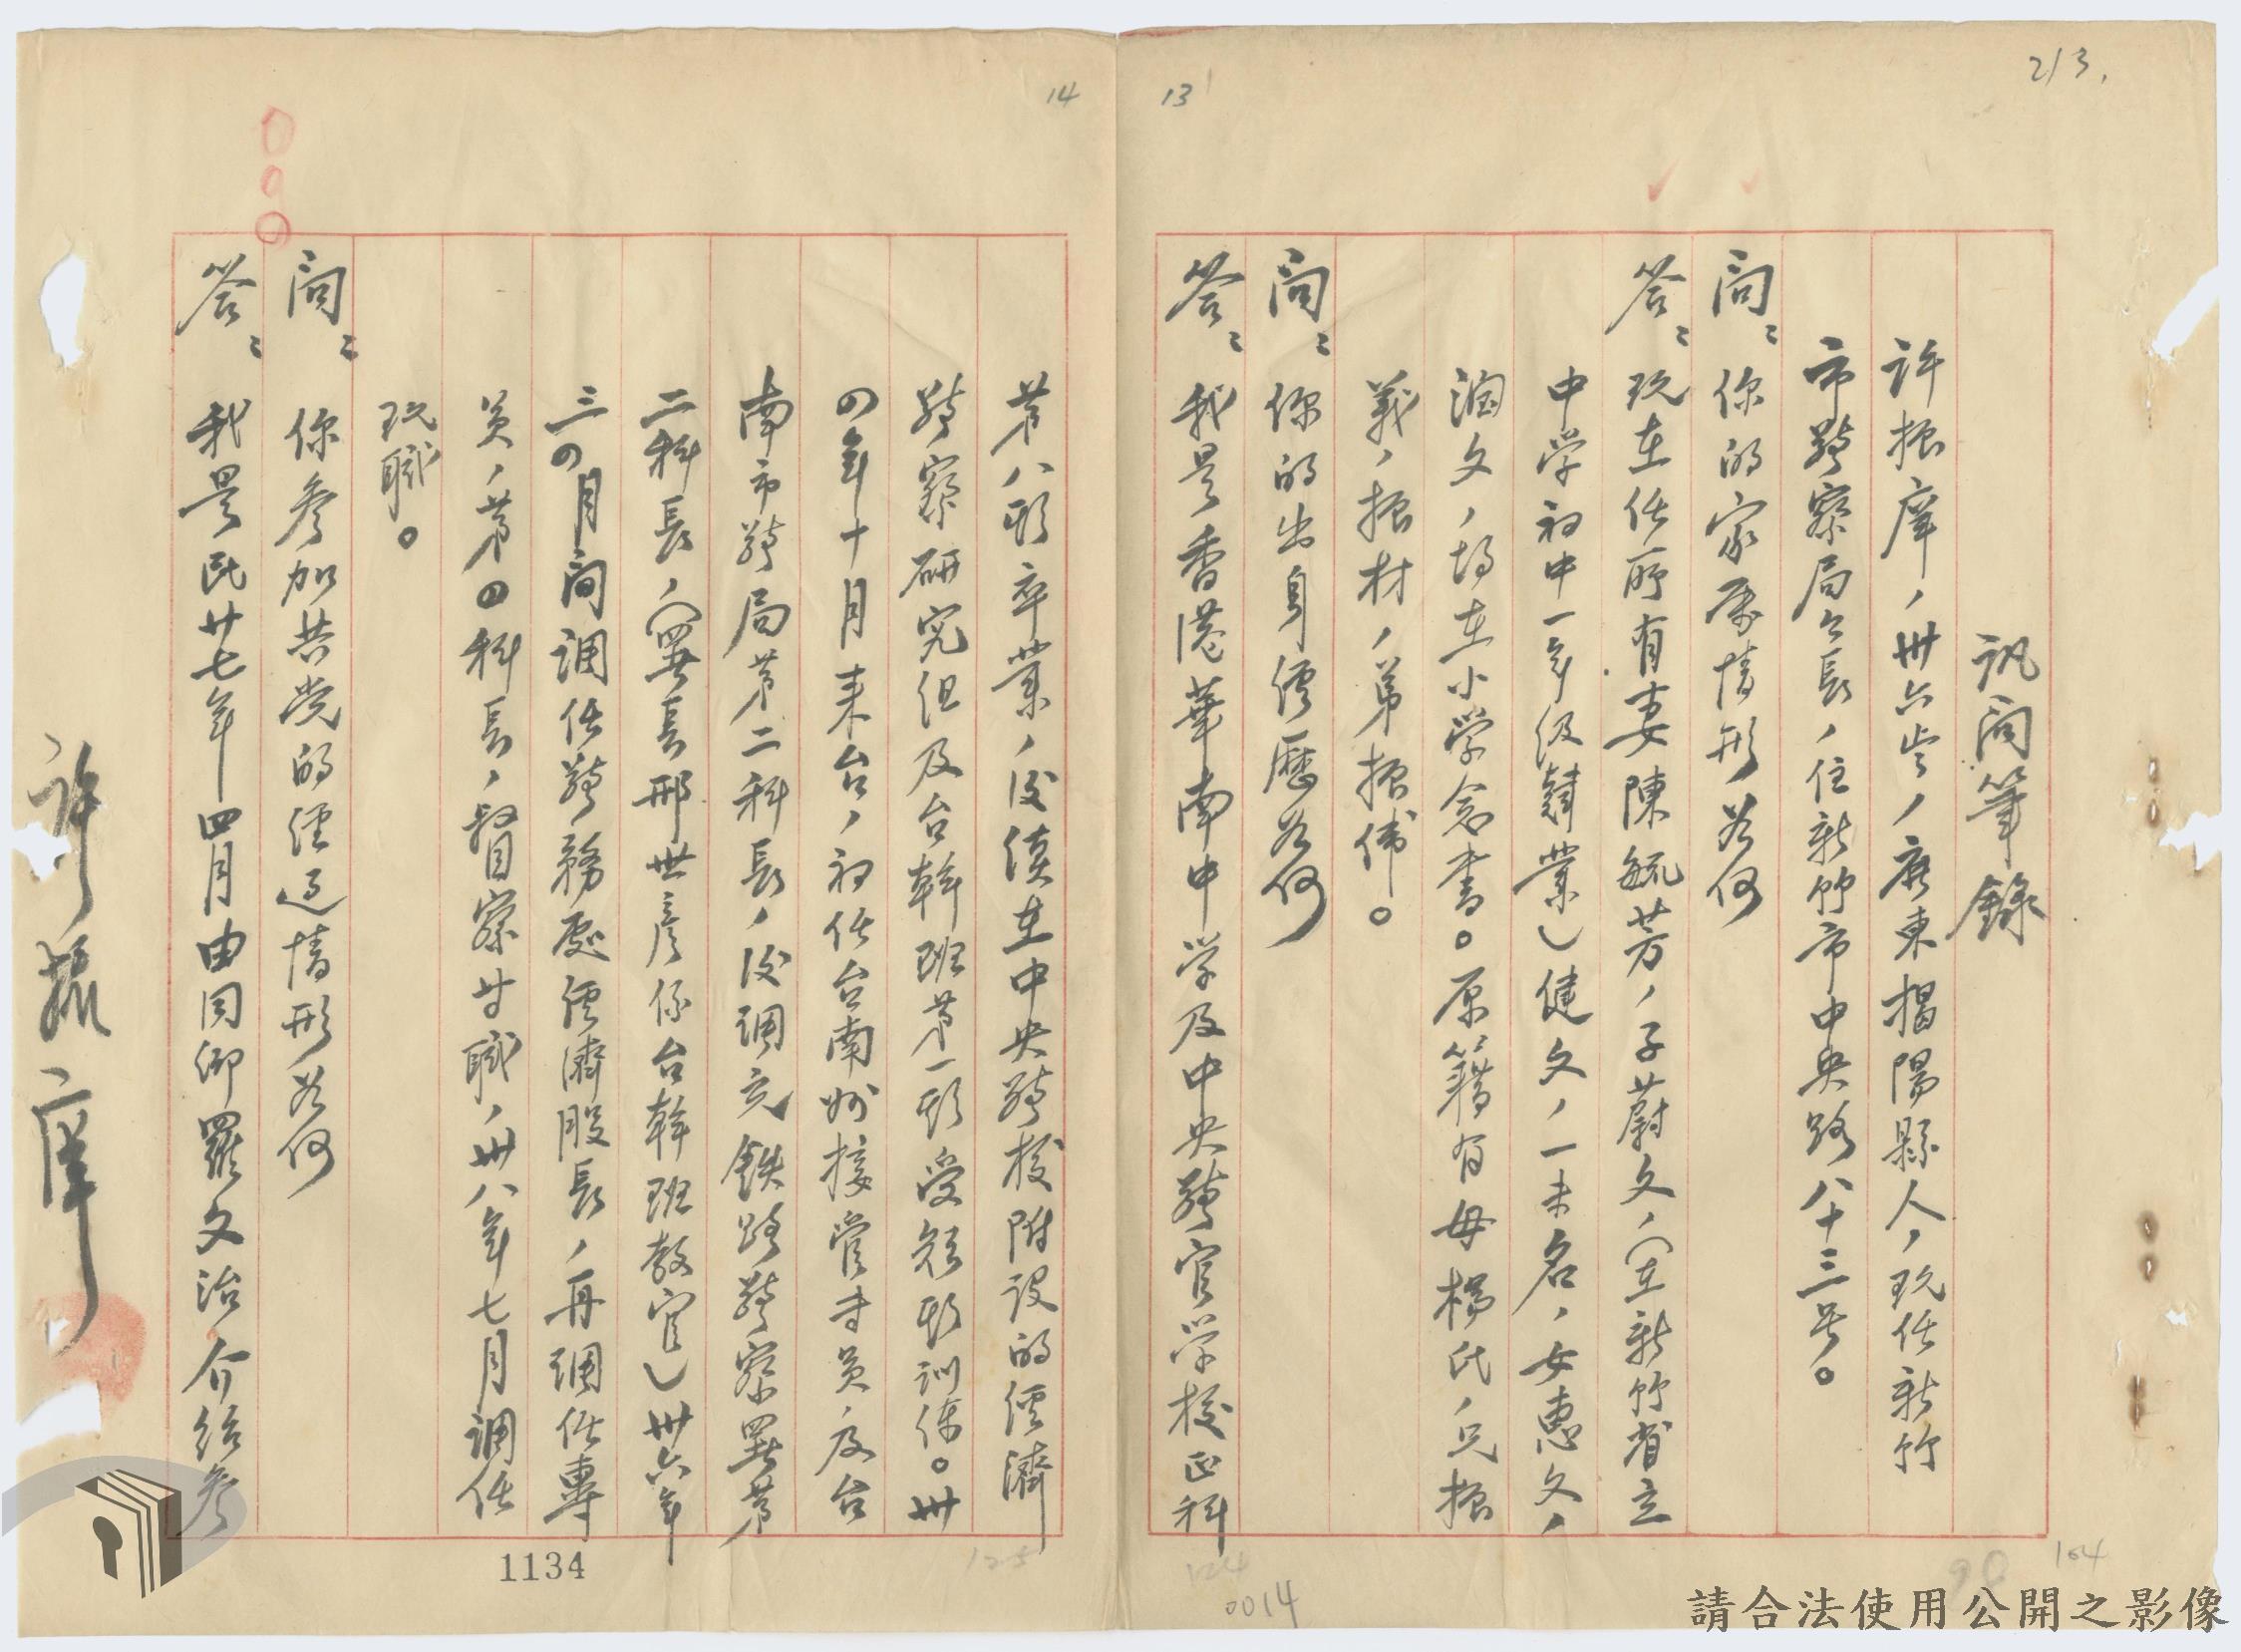 213.
13
訊問筆錄
許振庠，卅六歲，廣東揭陽縣人，現任新竹
市警察局局長，住新竹市中央路八十三号。
問：你的家屬情形若何
答：現在任所有妻陳毓芳，子蔚文，（在新竹省立
中学初中一年級肄業）健文，一未名，女惠文，
洵文，均在小学念書。原籍有母楊氏，兄振
義，振材，弟振偉。
問：你的出身經歷若何
答：我是香港華南中学及中央警官学校正科
124
0014
90
104
14
第八期卒業，後續在中央警校附設的經濟
警察研究組及台幹班第一期受短期訓練。卅
四年十月来台，初任台南州接管專員，及台
南市警局第二科長，後調充鉄路警察署第
二科長，（署長邢世彦係台幹班教官）卅六年
三四月間調任警務處經濟股長，再調任專
員，第四科長，督察等職，卅八年七月調任
現職。
問：你參加共党的經過情形若何
答：我是民廿七年四月由同鄉羅文治介紹參
許振庠
090
125
1134
請合法使用公開之影像